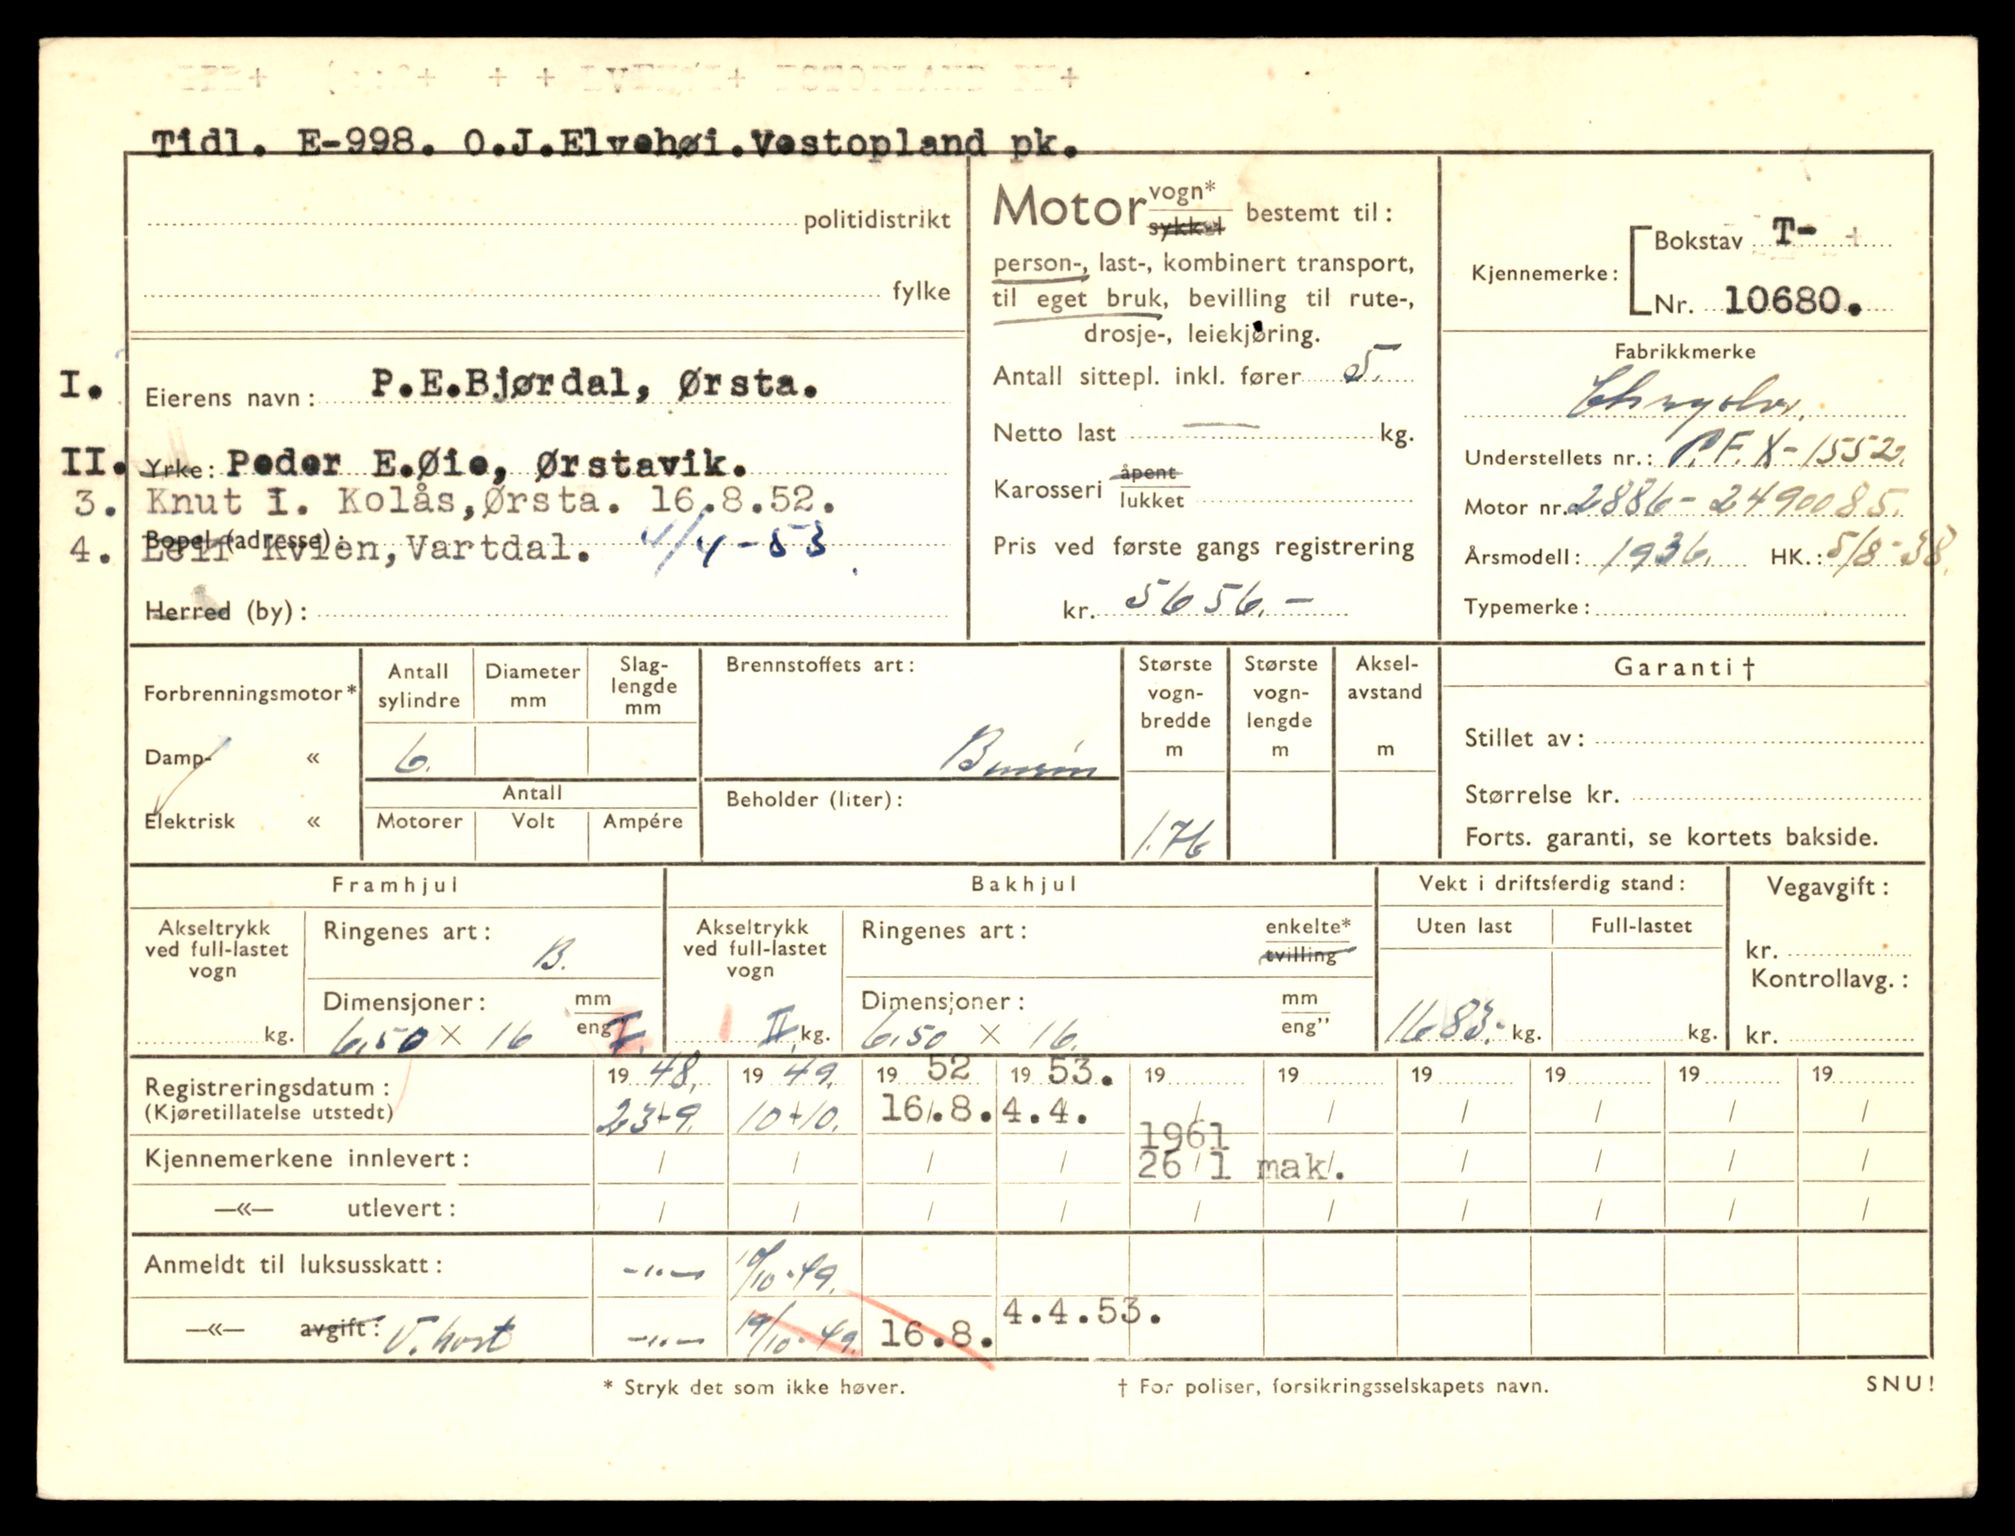 Tidl. E-998. O.J.Elvehøi.Vestopland pk.
politidistrikt
fylke
I. Eierens navn: P.E.Bjørdal, Ørsta.
II. Yrke: Peder E.Øie, Ørstavik.
3. Knut I. Kolås,Ørsta. 16.8.52.
Bopel (adresse):
4. Leif Kvien,Vartdal. 4/4-53
Herred (by):
Motor vogn* sykkel bestemt til:
person-, last-, kombinert transport,
til eget bruk, bevilling til rute-,
drosje-, leiekjøring.
Antall sittepl. inkl. fører 5.
Netto last — kg.
Karosseri åpent lukket
Pris ved første gangs registrering
kr. 5656.-
Kjennemerke: Bokstav T-
Nr. 10680.
Fabrikkmerke
Chrysler.
Understellets nr.: P.F.X-1552.
Motor nr.: 2886-2490085.
Årsmodell: 1936. HK.: 5/8-38.
Typemerke:
Forbrenningsmotor*
Damp- «
Elektrisk «
Antall sylindre
6.
Diameter mm
Slaglengde mm
Antall
Motorer Volt Ampére
Brennstoffets art:
Bensin
Beholder (liter):
Største vognbredde m
1.76
Største vognlengde m
Akselavstand m
Garanti †
Stillet av:
Størrelse kr.
Forts. garanti, se kortets bakside.
Framhjul
Akseltrykk ved full-lastet vogn
kg.
Ringenes art: B.
Dimensjoner: mm eng" I.
6,50 × 16
Bakhjul
Akseltrykk ved full-lastet vogn
II. kg.
Ringenes art: enkelte* tvilling
Dimensjoner: mm eng"
6,50 × 16.
Vekt i driftsferdig stand:
Uten last Full-lastet
1683.- kg. kg.
Vegavgift:
kr.
Kontrollavg.:
kr.
Registreringsdatum: 19 48. 19 49. 19 52 19 53. 19 19 19 19 19 19
(Kjøretillatelse utstedt) 23-9. 10-10. 16.8. 4.4. / / / / / /
1961
Kjennemerkene innlevert: / / / / 26/1 mak. / / / / /
—«— utlevert: / / / / / / / / / /
Anmeldt til luksusskatt: -"- 10/10-49.
—«— avgift: V.kort -"- 19/10-49. 16.8. 4.4.53.
* Stryk det som ikke høver.
† For poliser, forsikringsselskapets navn.
SNU!